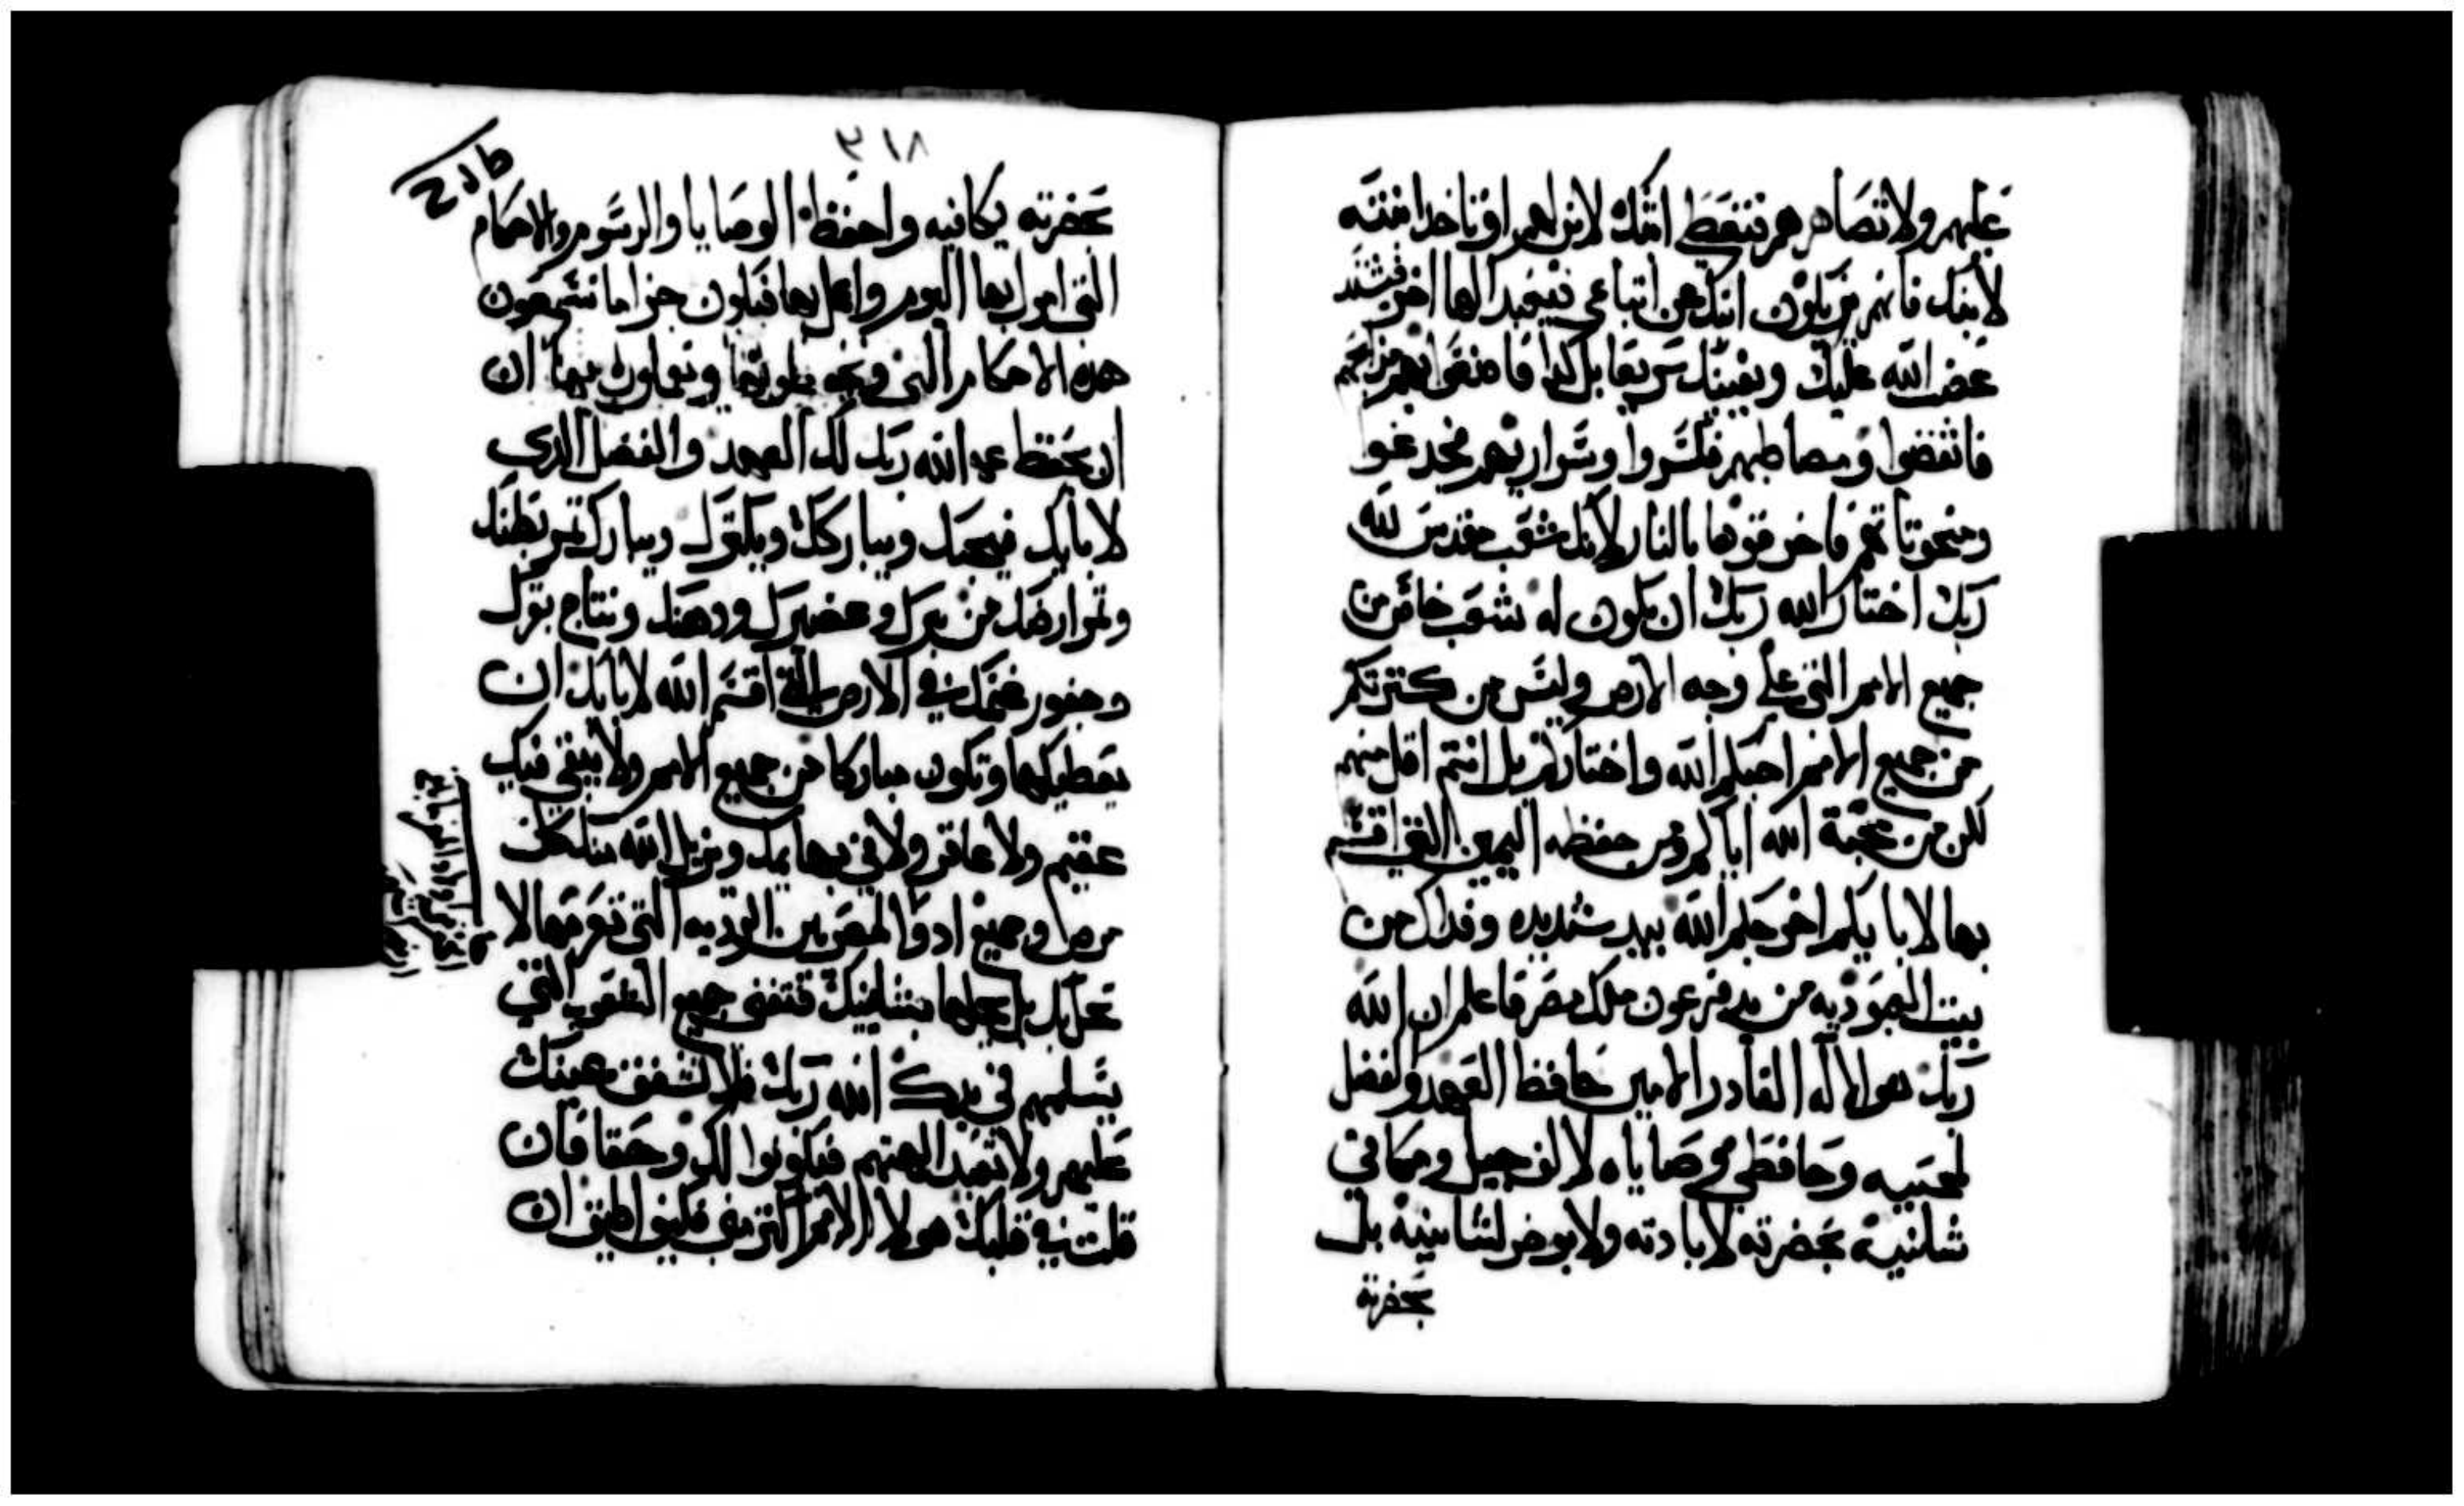 عليهم ولا تصاهرهم فتعطي ابنتك لابن احدهم او تاخد ابنته
لابنك فانهم يزيلون ابنك من اتباعي فيعبد الها اخر فيشتد
غضب الله عليك ويفنيك سريعا بل كدا فاصنعوا بهم مدابحهم
فانقضوا ومصاطبهم فكسروا وسواريهم فجدعوا
ومنحوتاتهم فاحرقوها بالنار لانك شعب مقدس لله
ربك اختارك الله ربك ان تكون له شعب خاص من
جميع الامم التي على وجه الارض وليس من كثرتكم
من جميع الامم احبكم الله واختاركم بل انتم اقل منهم
لكن من محبة الله اياكم ومن حفظه اليمين التي اقسم
بها لابايكم اخرجكم الله بيد شديده وفداك من
بيت العبوديه من يد فرعون ملك مصر فاعلم ان الله
ربك هو الاله القادر الامين حافظ العهد والفضل
لمحبيه وحافظي وصاياه لالف جيل ومكافي
شانيه بحضرته لابادته ولا يوخر لشانيه بل
بحضرته
٣١٨
بحضرته يكافيه واحفظ الوصايا والرسوم والاحكام
التي امرك بها اليوم واعمل بها فيكون جزا ما تسمعون
هده الاحكام التي وتعملون بها ان
ان يحفظ الله ربك لك العهد والفضل الدي
لابايك فيحبك ويباركك ويكثرك ويبارك ثمر بطنك
وثمر ارضك من برك وعصيرك ودهنك ونتاج بقرك
وجفور غنمك في الارض التي اقسم الله لابايك ان
يعطيكها وتكون مباركا من جميع الامم ولا يبقى فيك
عقيم ولا عاقر ولا في بهايمك ويزيل الله عنك كل
مرض وجميع ادوا المصريين الرديه التي تعرفها لا
تحل بك بل يجعلها بشانيك فتفني جميع الشعوب التي
يسلمهم في يدك الله ربك فلا تشفق عينك
عليهم ولا تعبد الهتهم فيكونوا لك وهقا فان
قلت في قلبك هولا الامم اكثر مني فكيف اطيق ان